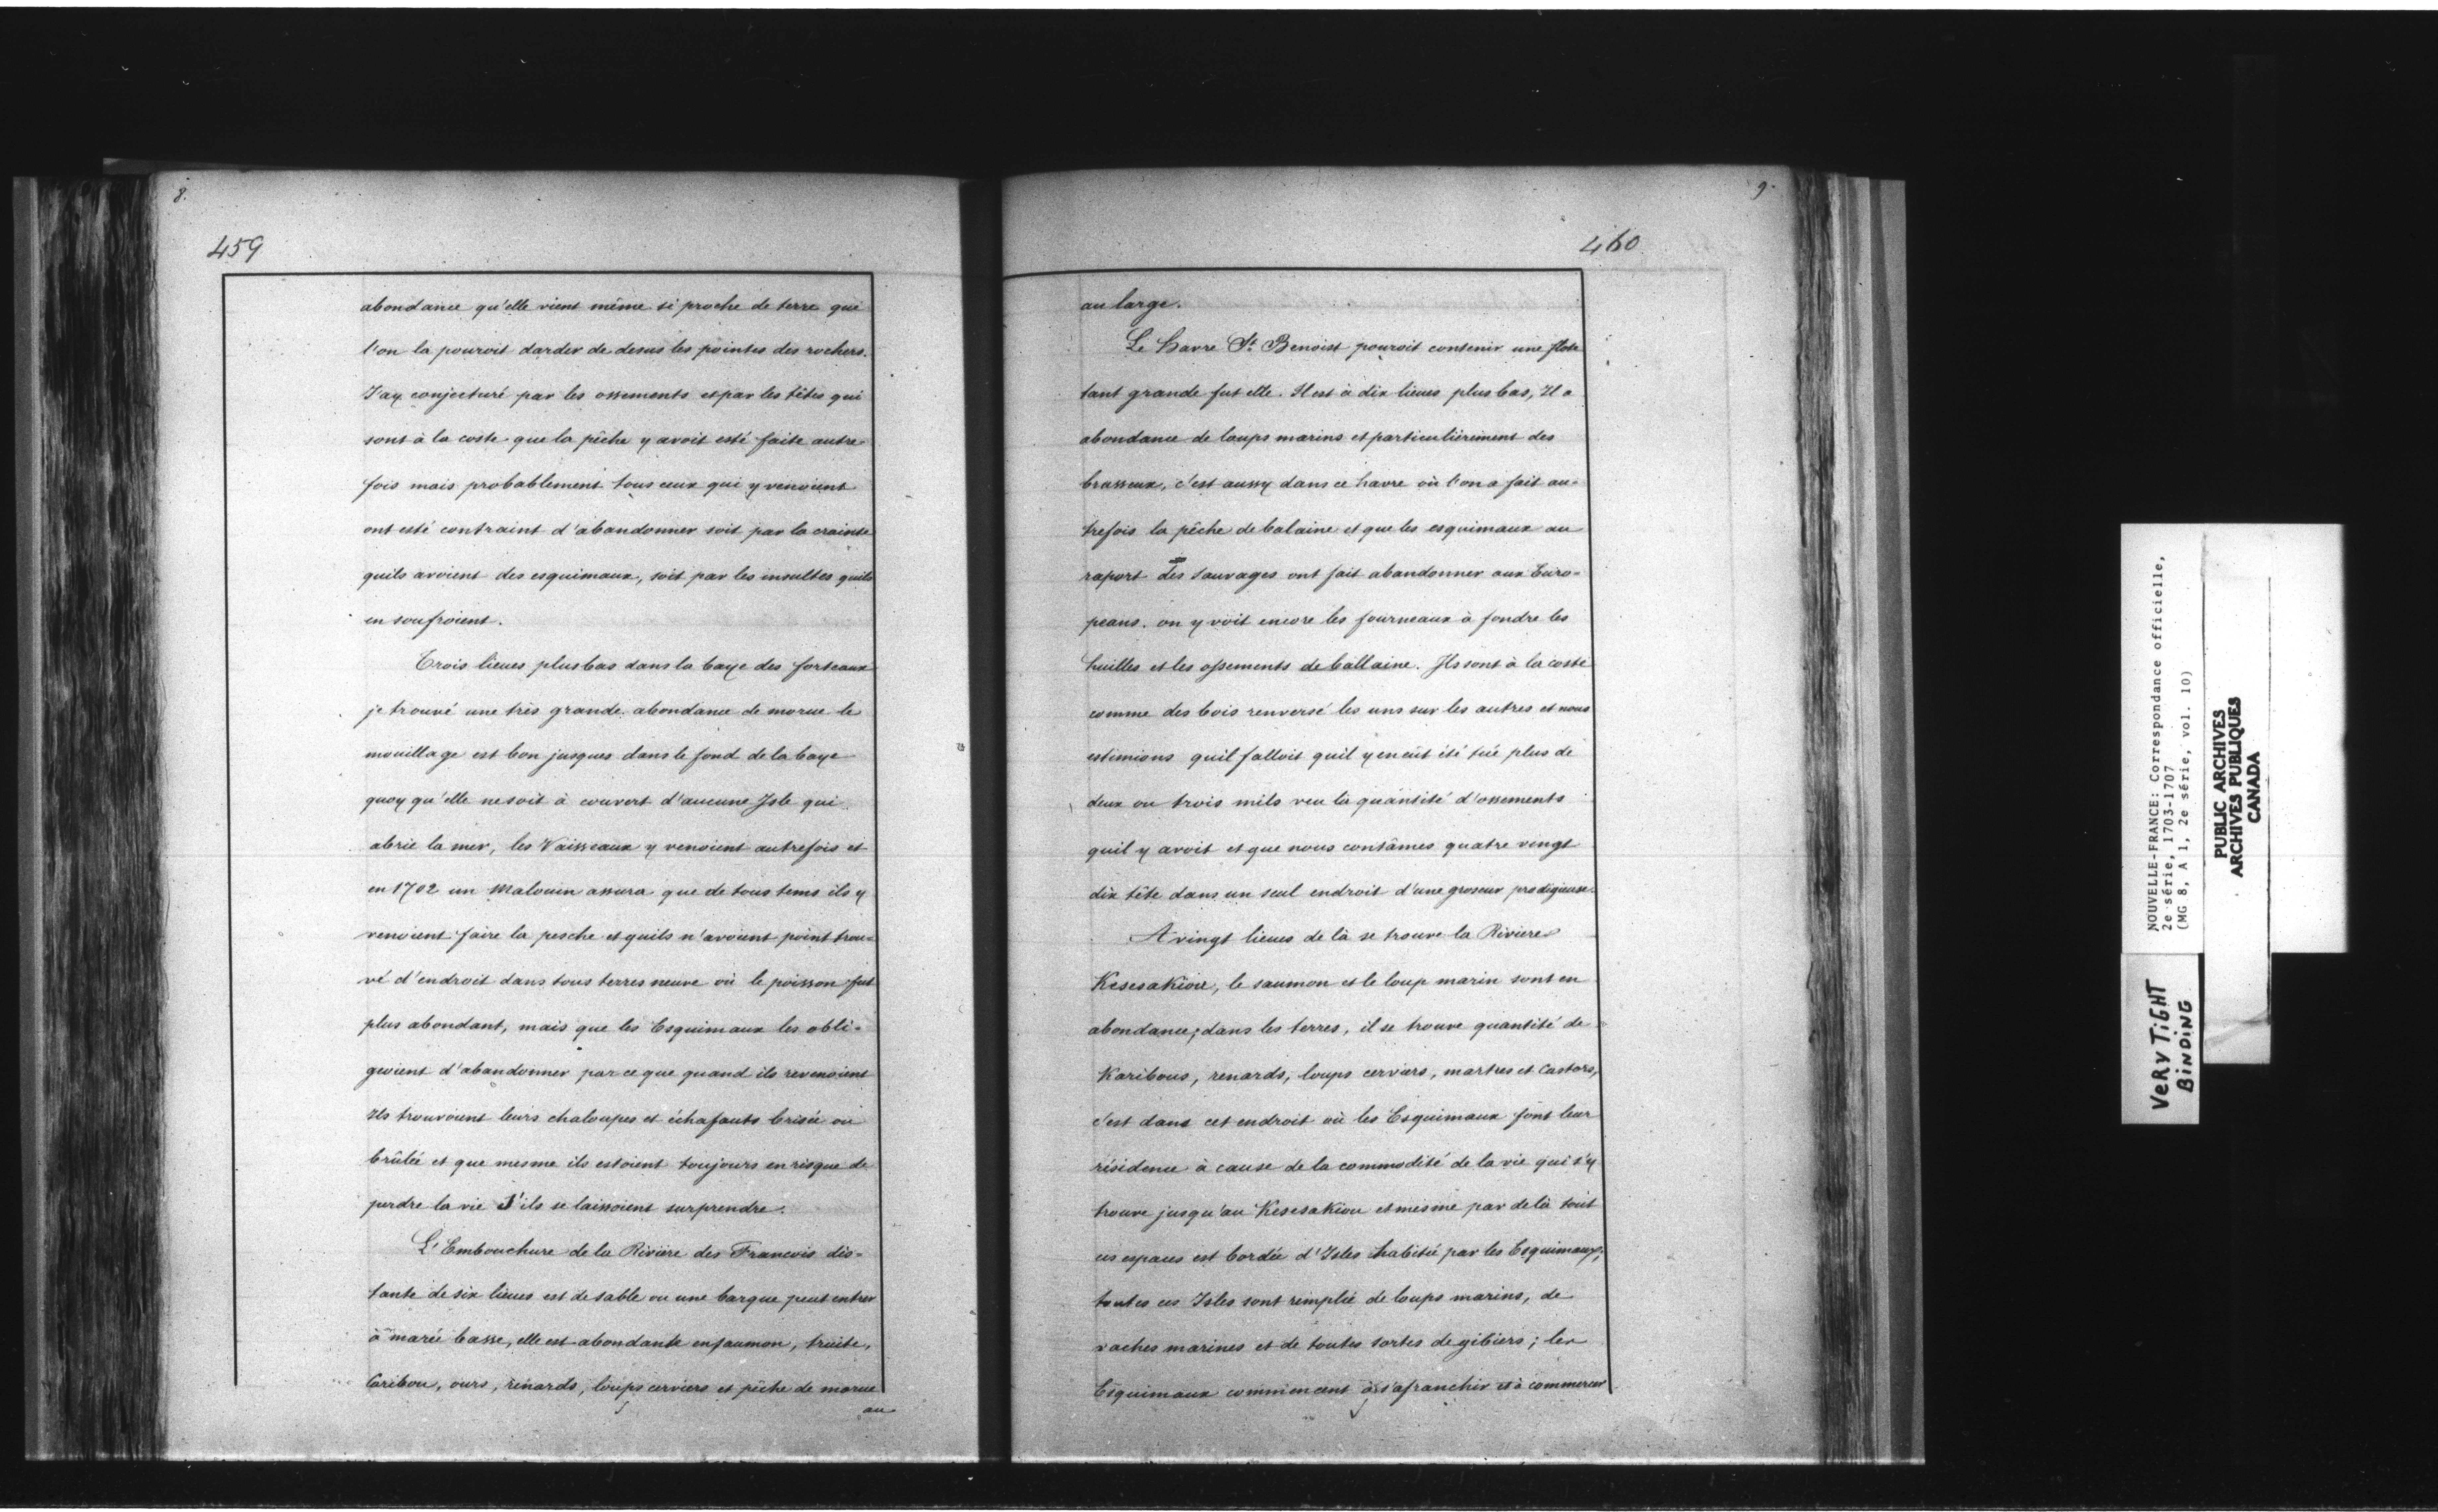 8.
459
abondance qu'elle vient même si proche de terre que
l'on la pouroit darder de desus les pointes des rochers.
J'ay conjecturé par les ossements et par les têtes qui
sont à la coste que la pêche y avoit esté faite autre-
fois mais probablement tous ceux qui y venoient
ont esté contraint d'abandonner soit par la crainte
quils avoient des esquimaux, soit par les insultes quils
en soufroient.
Trois lieues plus bas dans la baye des forteaux
je trouvé une très grande abondance de morue le
mouillage est bon jusques dans le fond de la baye
quoy qu'elle ne soit à couvert d'aucune Isle qui
abrie la mer, les Vaisseaux y venoient autrefois et
en 1702 un Malouin assura que de tous tems ils y
venoient faire la pesche et quils n'avoient point trou-
vé d'endroit dans tous terres neuve où le poisson fut
plus abondant, mais que les Esquimaux les obli-
geoient d'abandonner par ce que quand ils revenoient
Ils trouvoient leurs chaloupes et échafauts brisée ou
brûlée et que mesme ils estoient toujours en risque de
perdre la vie S'ils se laissoient surprendre.
L'Embouchure de la Rivière des Francois dis-
tante de six lieues est de sable ou une barque peut entrer
à marée basse, elle est abondante en saumon, truite,
Caribou, ours, renards, loups cerviers et pêche de morue
au
9.
460
au large.
Le Havre St. Benoist pouroit contenir une flote
tant grande fut elle. Il est à dix lieues plus bas, Il a
abondance de loups marins et particulièrement des
brasseux, c'est aussy dans ce havre où l'on a fait au-
trefois la pêche de balaine et que les esquimaux au
raport des Sauvages ont fait abandonner aux Euro-
peans. on y voit encore les fourneaux à fondre les
huilles et les ossements de ballaine. Ils sont à la coste
comme des bois renversé les uns sur les autres et nous
estimions quil falloit quil y en eût été tué plus de
deux ou trois mils veu la quantité d'ossements
quil y avoit et que nous contâmes quatre vingt
dix tête dans un seul endroit d'une groseur prodigieuse.
A vingt lieues de là se trouve la Riviere
Kesesakiou, le saumon et le loup marin sont en
abondance; dans les terres, il se trouve quantité de
Karibous, renards, loups cerviers, martres et Castors,
c'est dans cet endroit où les Esquimaux font leur
résidence à cause de la commodité de la vie qui s'y
trouve jusqu'au Kesesakiou et mesme par delà tout
ces espaces est bordée d'Isles habitée par les Esquimaux;
toutes ces Isles sont remplie de loups marins, de
vaches marines et de toutes sortes de gibiers; les
Esquimaux commencent à s'afranchir et à commercer
NOUVELLE-FRANCE: Correspondance officielle,
2e série, 1703-1707
(MG 8, A 1, 2e série, vol. 10)
PUBLIC ARCHIVES
ARCHIVES PUBLIQUES
CANADA
VERY TIGHT
BINDING